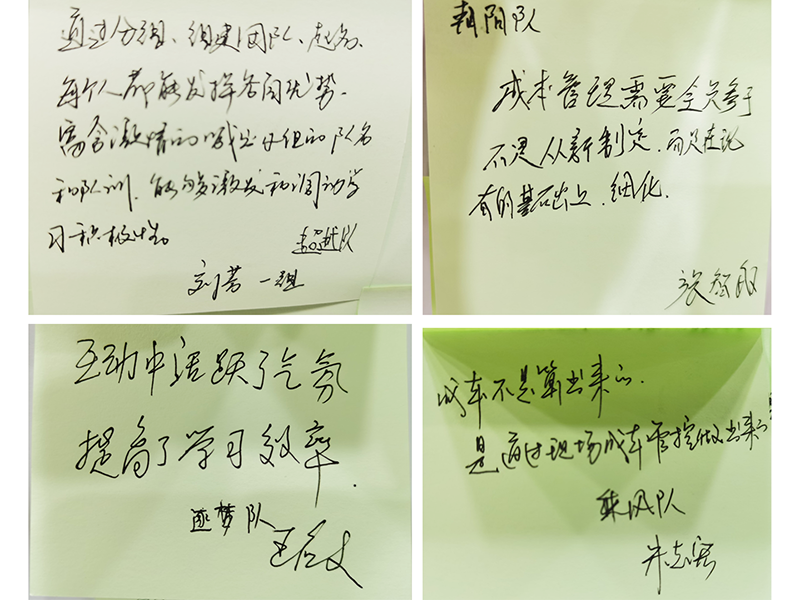 通过分组、组建团队、起名、
每个人都能发挥各自优势。
富含激情的喊出小组的队名
和队训，能够激发和调动学
习积极性。
超越队
刘芳 一组
朝阳队
成本管理需要全员参于
不是从新制定，而是在现
有的基础上，细化。
张智
互动中活跃了气氛
提高了学习效率.
逐梦队
王文
成本不是算出来的.
是通过现场成本管控做出来的
乘风队
朱志